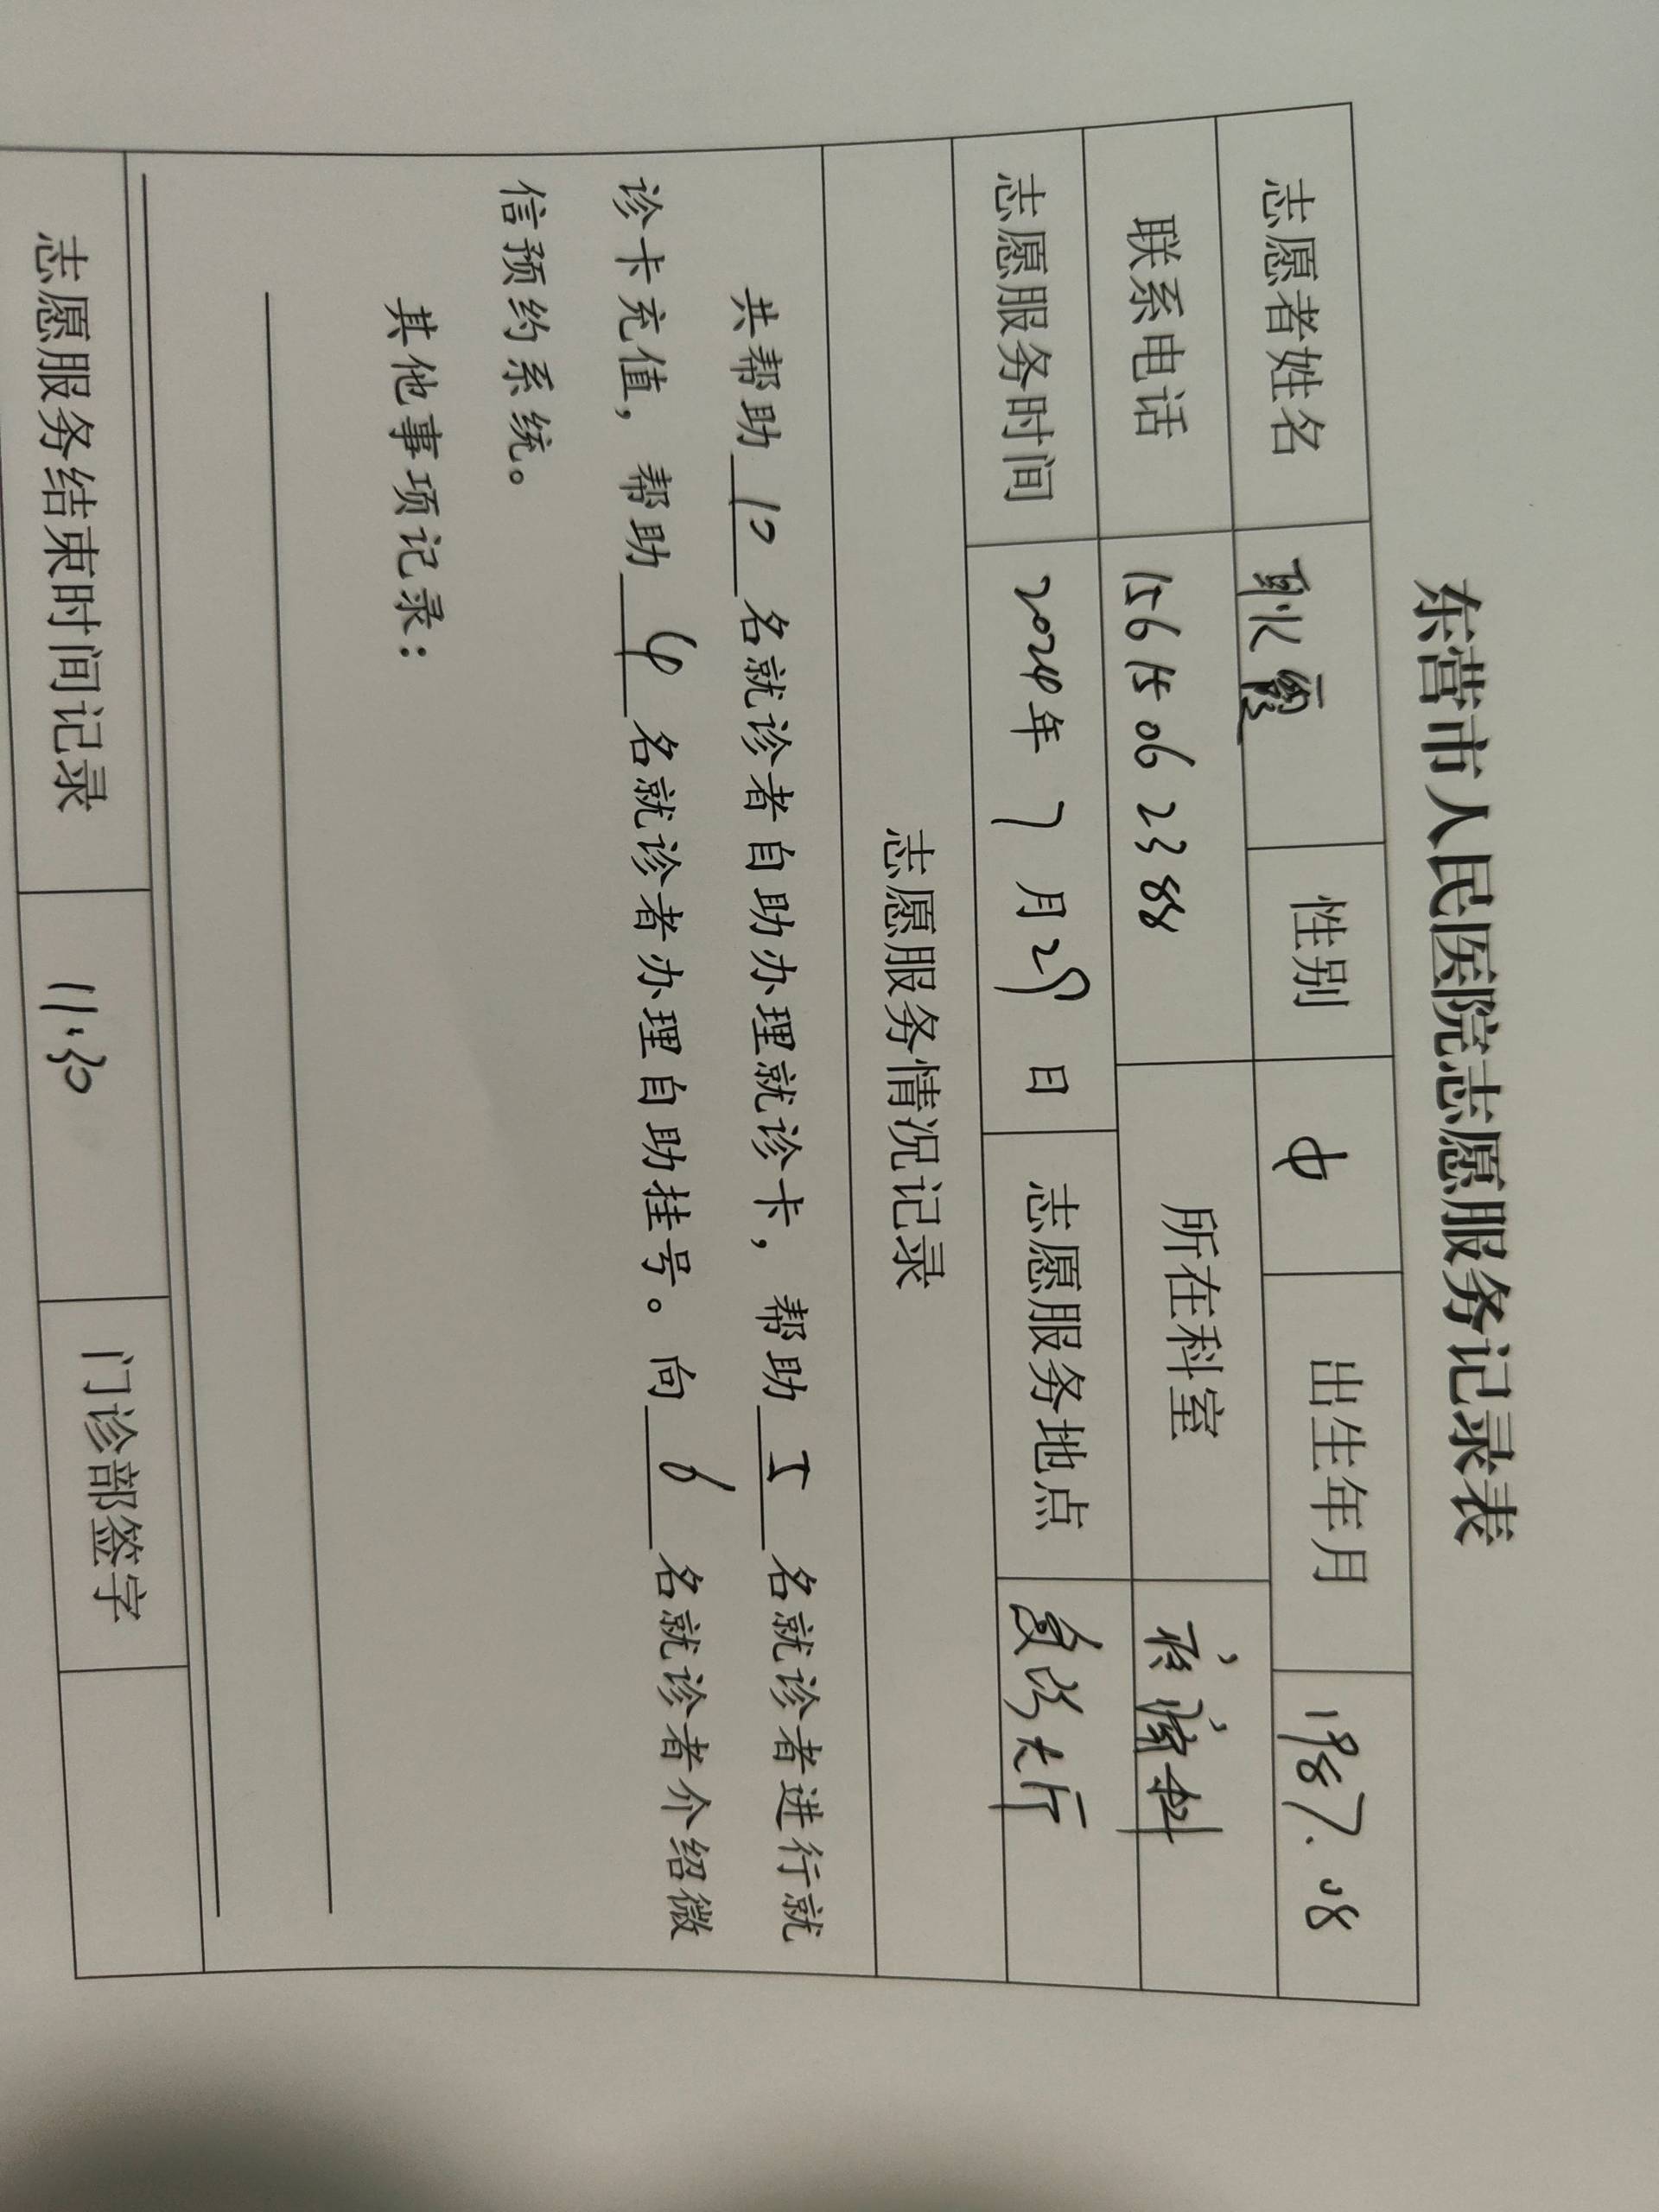 东营市人民医院志愿服务记录表
志愿者姓名 耿霞 性别 女 出生年月 1987.08
联系电话 15615062388 所在科室
志愿服务时间 2024年7月29日 志愿服务地点 大厅
志愿服务情况记录
共帮助10名就诊者自助办理就诊卡，帮助5名就诊者进行就
诊卡充值，帮助4名就诊者办理自助挂号。向6名就诊者介绍微
信预约系统。
其他事项记录：
志愿服务结束时间记录 11:30 门诊部签字